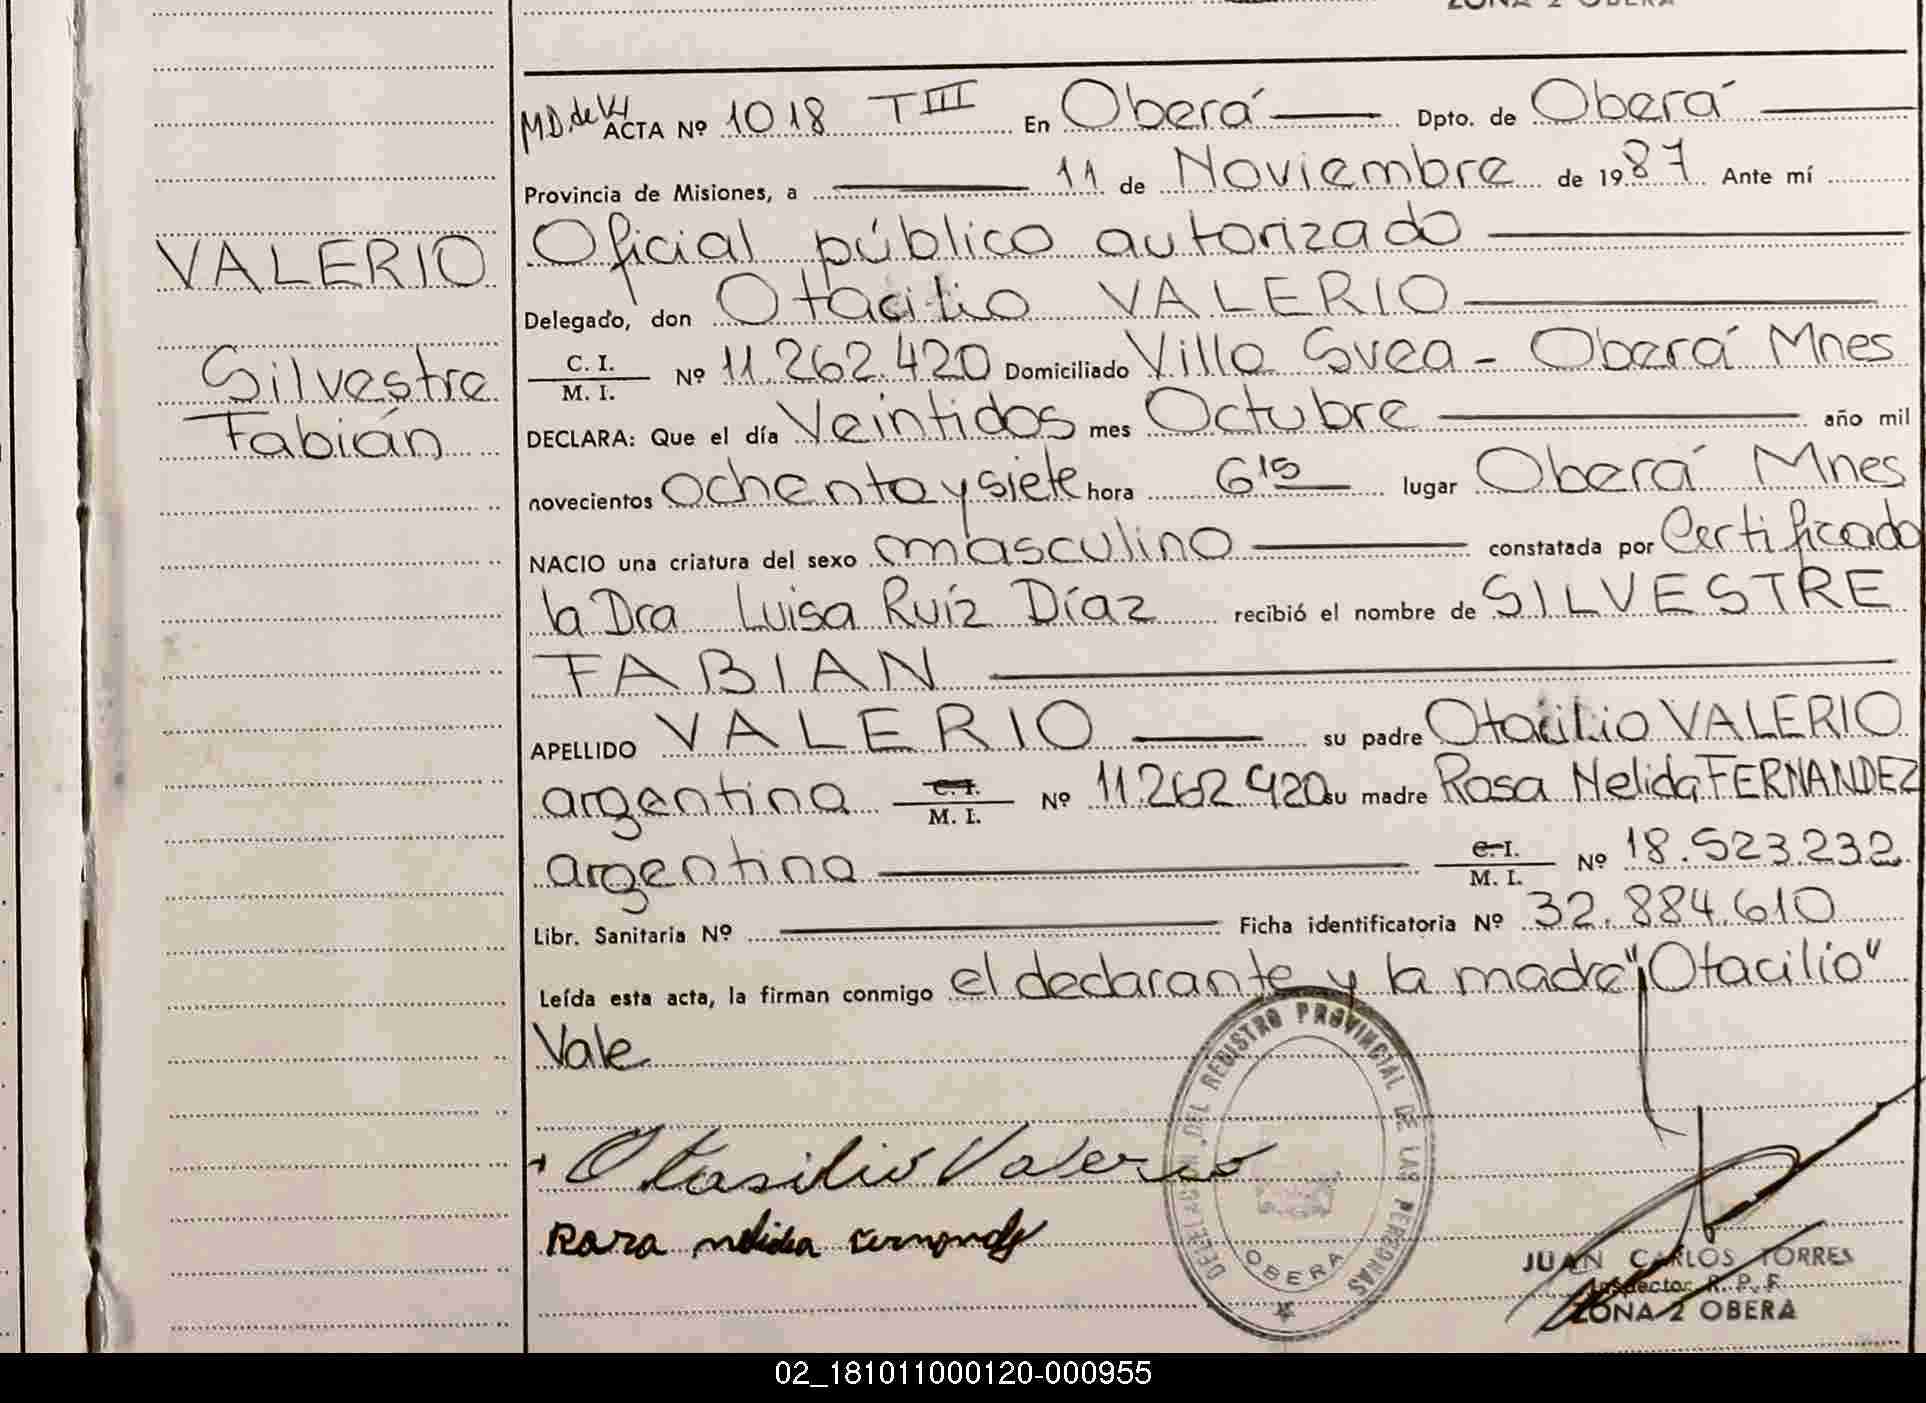 ZONA 2 OBERA
M.D. de VI ACTA Nº 1018 T III En Oberá Dpto. de Oberá
Provincia de Misiones, a 11 de Noviembre de 1987 Ante mí
Oficial público autorizado
Delegado, don Otacilio VALERIO
C. I. / M. I. Nº 11.262.420 Domiciliado Villa Svea - Oberá Mnes
DECLARA: Que el día Veintidos mes Octubre año mil
novecientos ochenta y siete hora 6 15 lugar Oberá Mnes
NACIO una criatura del sexo masculino constatada por Certificado
la Dra Luisa Ruíz Díaz recibió el nombre de SILVESTRE
FABIAN
APELLIDO VALERIO su padre Otacilio VALERIO
argentina C. I. / M. I. Nº 11.262.420 su madre Rosa Nelida FERNANDEZ
argentina C. I. / M. I. Nº 18.523.232
Libr. Sanitaria Nº Ficha identificatoria Nº 32.884.610
Leída esta acta, la firman conmigo el declarante y la madre "Otacilio"
Vale
VALERIO
Silvestre
Fabián
Otasilio Valerio
Rosa nelida
DELEGACION DEL REGISTRO PROVINCIAL DE LAS PERSONAS
OBERA
JUAN CARLOS TORRES
Inspector R. P. F.
ZONA 2 OBERA
02_181011000120-000955